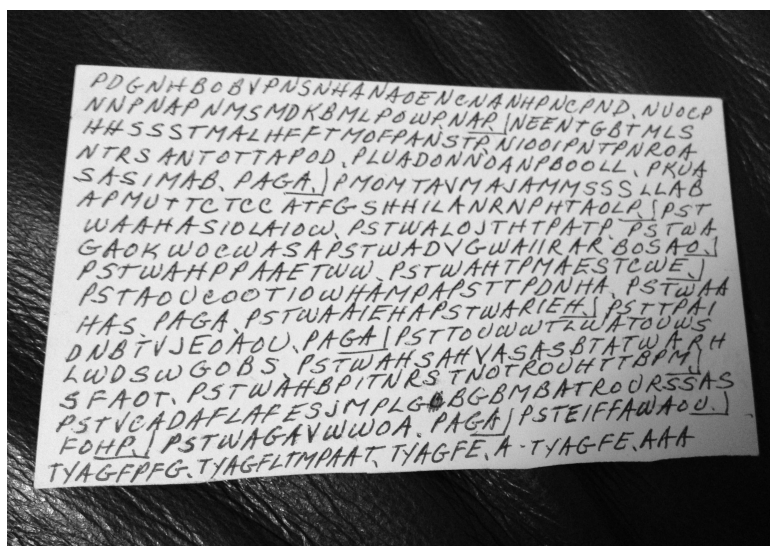 PDGNHBOBVPNSNHANAOENCNANHPNCPND. NUOCP
NNPNAPNMSMDKBMLPOWP.NAP. NEENTGBTMLS
HHSSSTMALHFFTMOFPANSTP. NIOOIPNTPNROA
NTRSANTOTTAPOD. PLUADONNOANPBOOLL. PKUA
SASIMAB. PAGA. PMOMTAVMAJAMMSSSLLAB
APMUTTCTCC ATFGSHHILANRNPHTAOLP. PST
WAAHASIOLAIOW. PSTWALOJTHTPATP. PSTWA
GAOKWOCWASAPSTWADVGWAIIRAR. BOSAO.
PSTWAHPPAAETWW. PSTWAHTPMAESTCWE.
PSTAOUCOOTIOWHAMPAPSTTPDNHA. PSTWAA
HAS. PAGA. PSTWAAIEHAPSTWARIEH. PSTTPAI
DNBTVJEOAOU. PAGA PSTTOUWWTLWATOUWS
LWDSWGOBS. PSTWAHSAHVASASBTATWARH
SFAOT. PSTWAHBPITNRSTNOTROUHTTBPM.
PSTVCADAFLAFESJMPLG BGBMBATROURSSAS
FOHP. PSTWAGAVWWOA. PAGA PSTEIFFAWAOU.
TYAGFPFG. TYAGFLTMPAAT. TYAGFE. A-TYAGFE. AAA